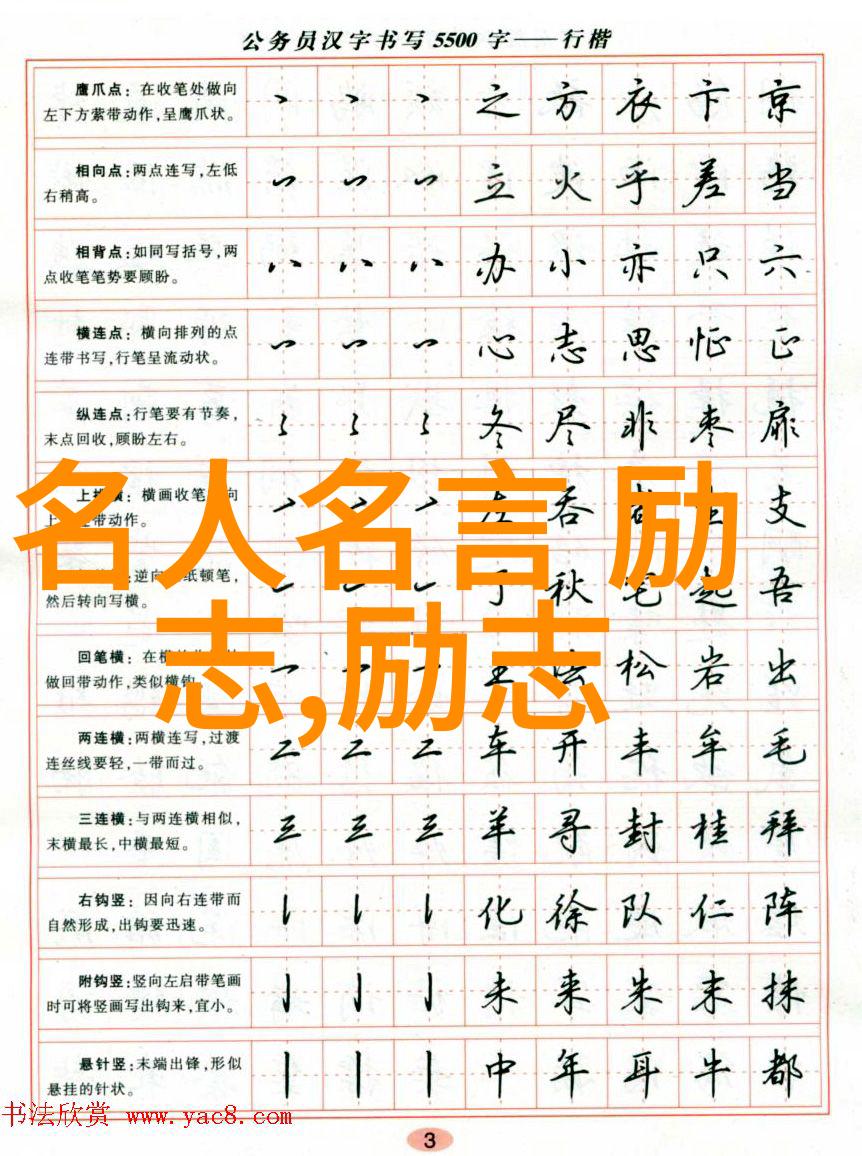 公务员汉字书写5500字——行楷
鹰爪点：在收笔处做向
左下方萦带动作，呈鹰爪状。
之 方 衣 卞 京
相向点：两点连写，左低
右稍高。
立 火 乎 差 当
相背点：如同写括号，两
点收笔笔势要顾盼。
办 小 亦 只 六
横连点：横向排列的点
连带书写，行笔呈流动状。
心 志 思 怔 正
纵连点：行笔要有节奏，
末点回收，顾盼左右。
冬 尽 非 枣 扉
横画收笔
动作。
吞 支
名人名言 励
志,励志
逆向 纸顿笔，
然后转向写横。
秋 起 吾
回笔横：在
做回带动作，类似横钩。
松 岩 出
两连横：两横连写，过渡
连丝线要轻，一带而过。
二 二 二 车 开 丰 牟 毛
三连横：与两连横相似，
末横最长，中横最短。
三 三 三 羊 寻 封 桂 拜
右钩竖：因向右连带而
自然形成，出钩要迅速。
化 徐 队 仁 阵
附钩竖：竖向左启带笔画
时可将竖画写出钩来，宜小。
未 来 朱 末 抹
悬针竖：末端出锋，形似
悬挂的针状。
中 年 耳 牛 都
书法欣赏 www.yac8.com
3